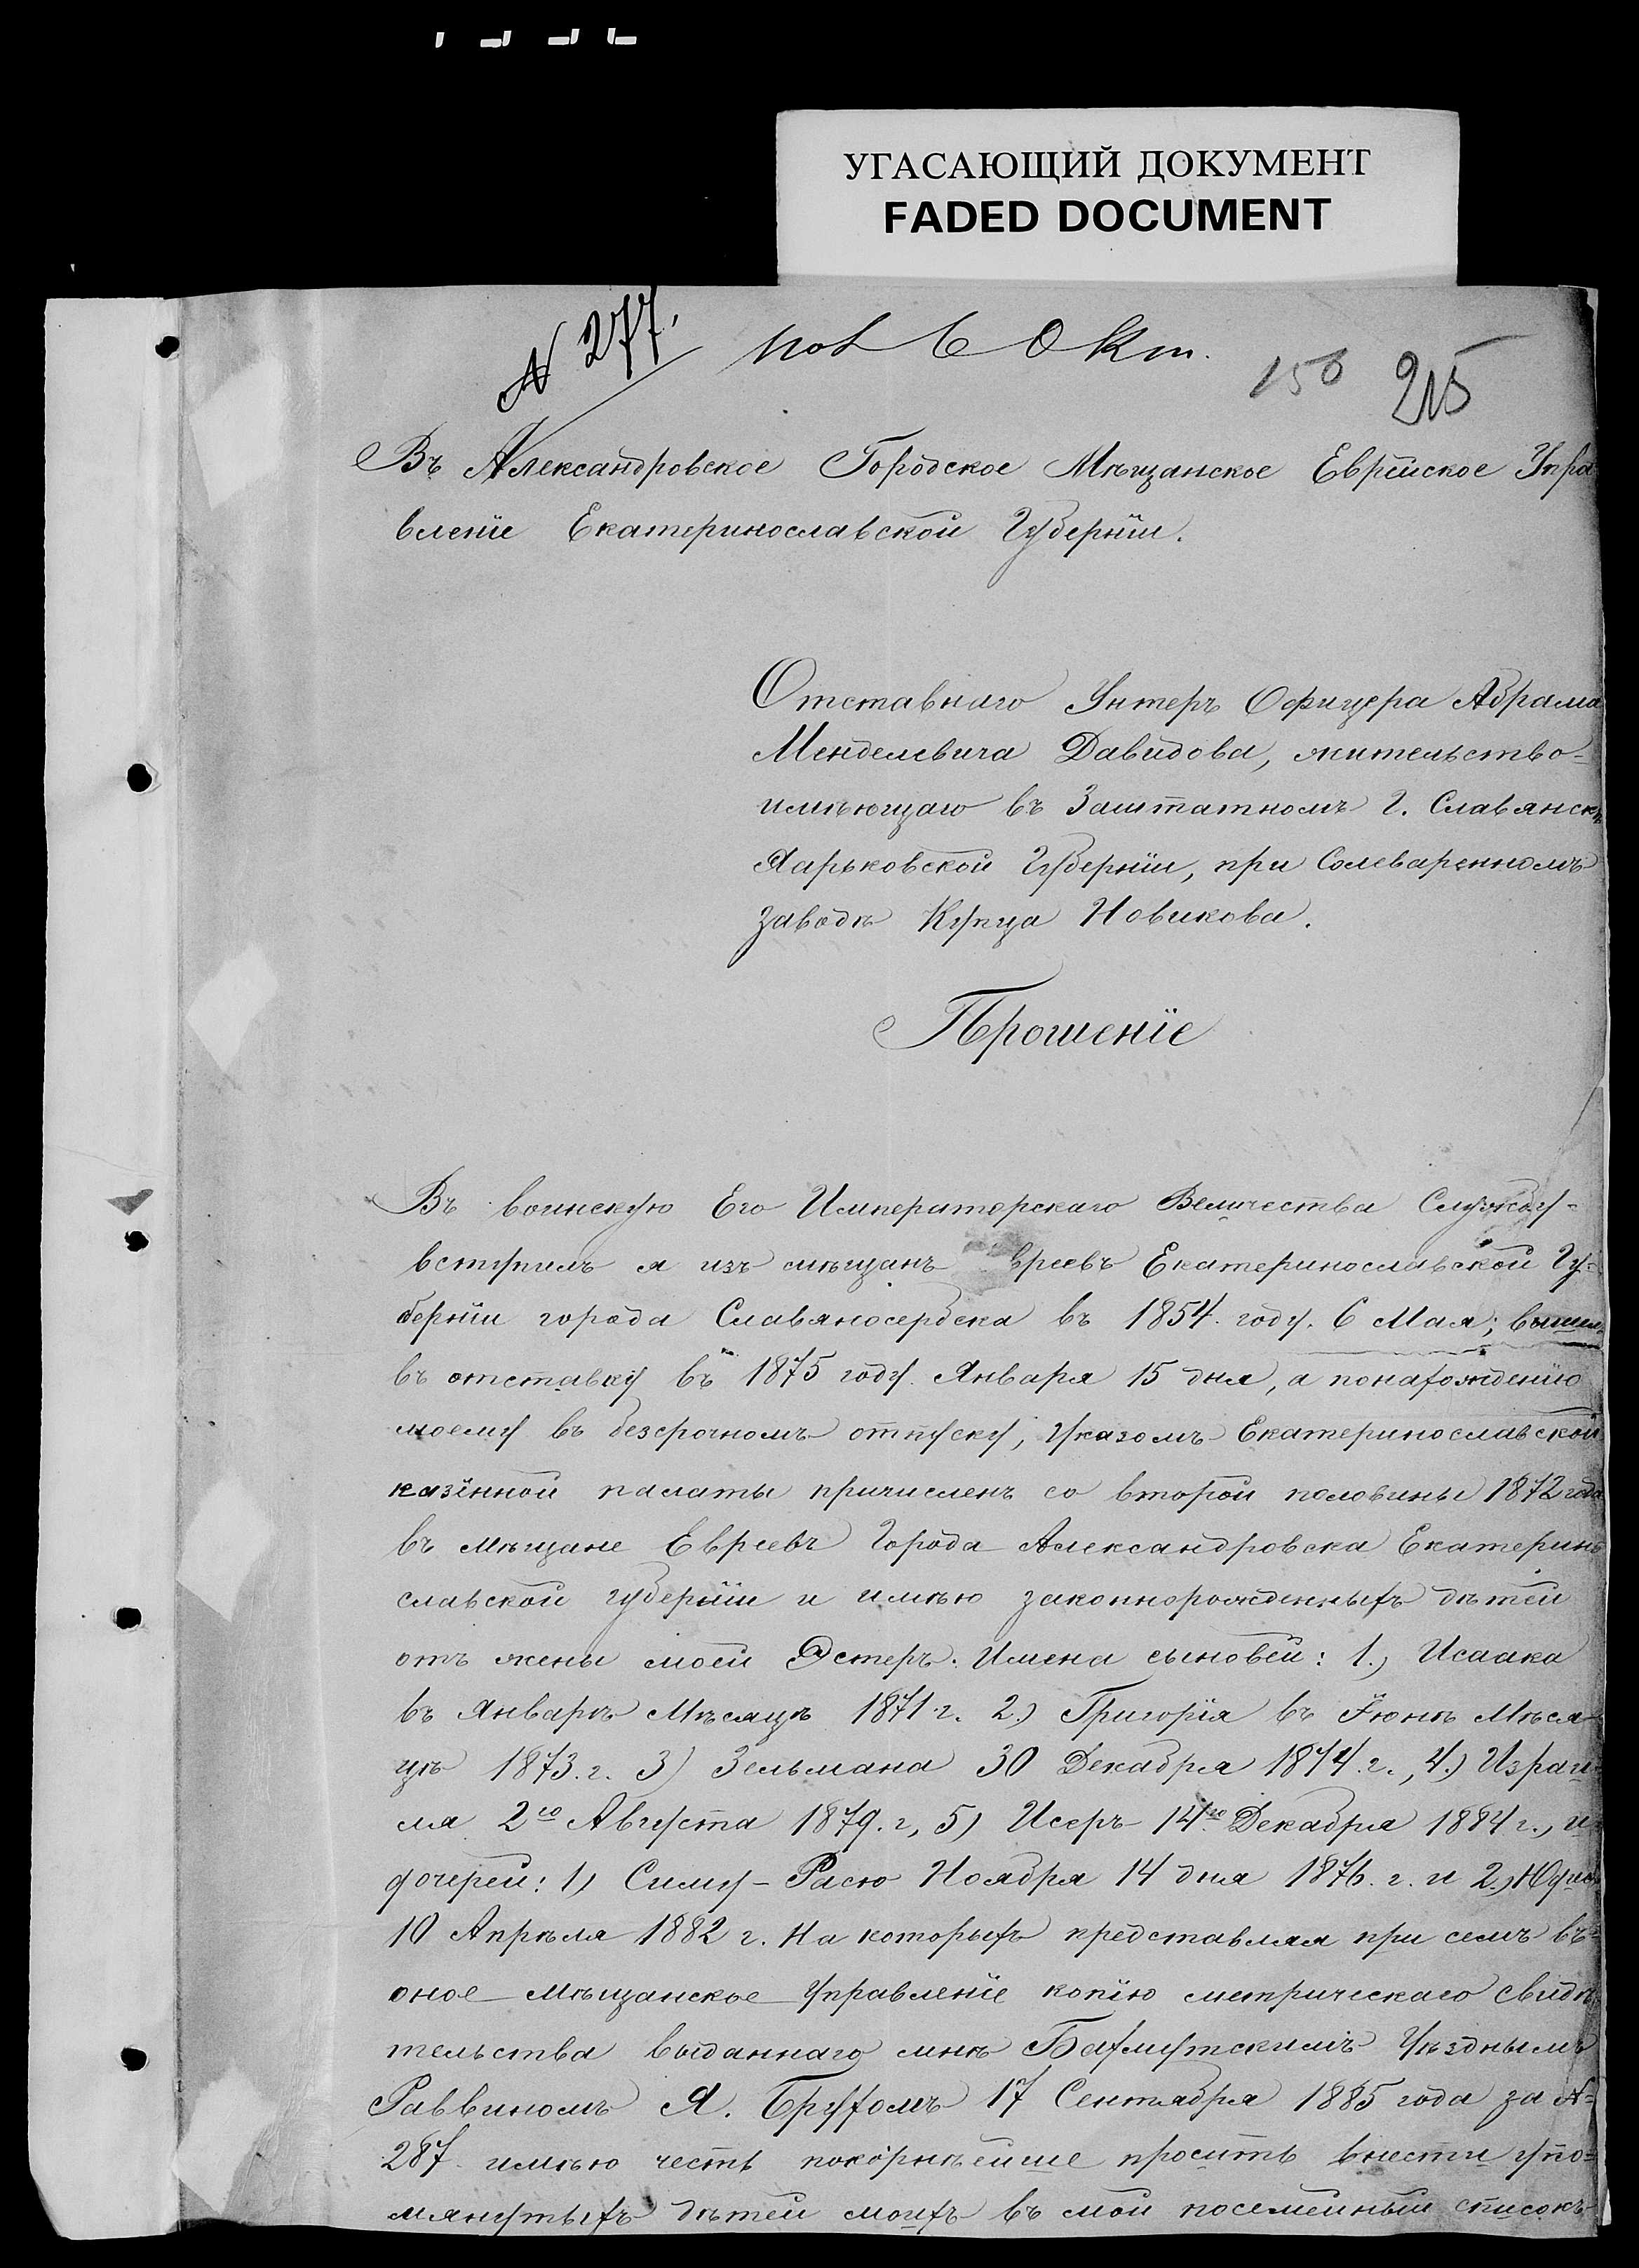 УГАСАЮЩИЙ ДОКУМЕНТ
FADED DOCUMENT
№ 277.
6 Окт.
150 215
Въ Александровское Городское Мѣщанское Еврейское Упра
вленіе Екатеринославской Губерніи.
Отставнаго Унтеръ Офицера Абрама
Менделевича Давидова, жительство-
имѣющаго въ Заштатномъ г. Славянскѣ
Харьковской Губерніи, при Солеваренномъ
заводѣ Купца Новикова.
Прошеніе
Въ воинскую Его Императорскаго Величества Службу-
вступилъ я изъ мѣщанъ вреевъ Екатеринославской Гу-
берніи города Славяносербска въ 1854 году. 6 Мая; вышелъ
въ отставку въ 1875 году. Января 15 дня, а понахожденію
моему въ безсрочномъ отпуску, Указомъ Екатеринославской
казенной палаты причисленъ со второй половины 1872 года
въ мѣщане Евреевъ Города Александровска Екатерино
славской губерніи и имѣю законнорожденныхъ дѣтей
отъ жены моей Эстеръ. Имена сыновей: 1.) Исаака
въ Январѣ Мѣсяцѣ 1871 г. 2.) Григорія въ Іюнѣ Мѣся-
цѣ 1873. г. 3) Зельмана 30 Декабря 1874. г., 4.) Израи-
ля 2го Августа 1879. г, 5) Исеръ 14го Декабря 1884 г., и
дочерей: 1) Симу-Расю Ноября 14 дня 1876. г. и 2.)
10 Апрѣля 1882 г. На которыхъ представляя при семъ въ-
оное Мѣщанское Управленіе копію метрическаго свидѣ
тельства выданнаго мнѣ Бахмутскимъ Уѣзднымъ
Раввиномъ Я. Брухомъ 17 Сентября 1885 года за №
287 имѣю честь покорнѣйше просить внести упо-
мянутыхъ дѣтей моихъ въ мой посемейный списокъ